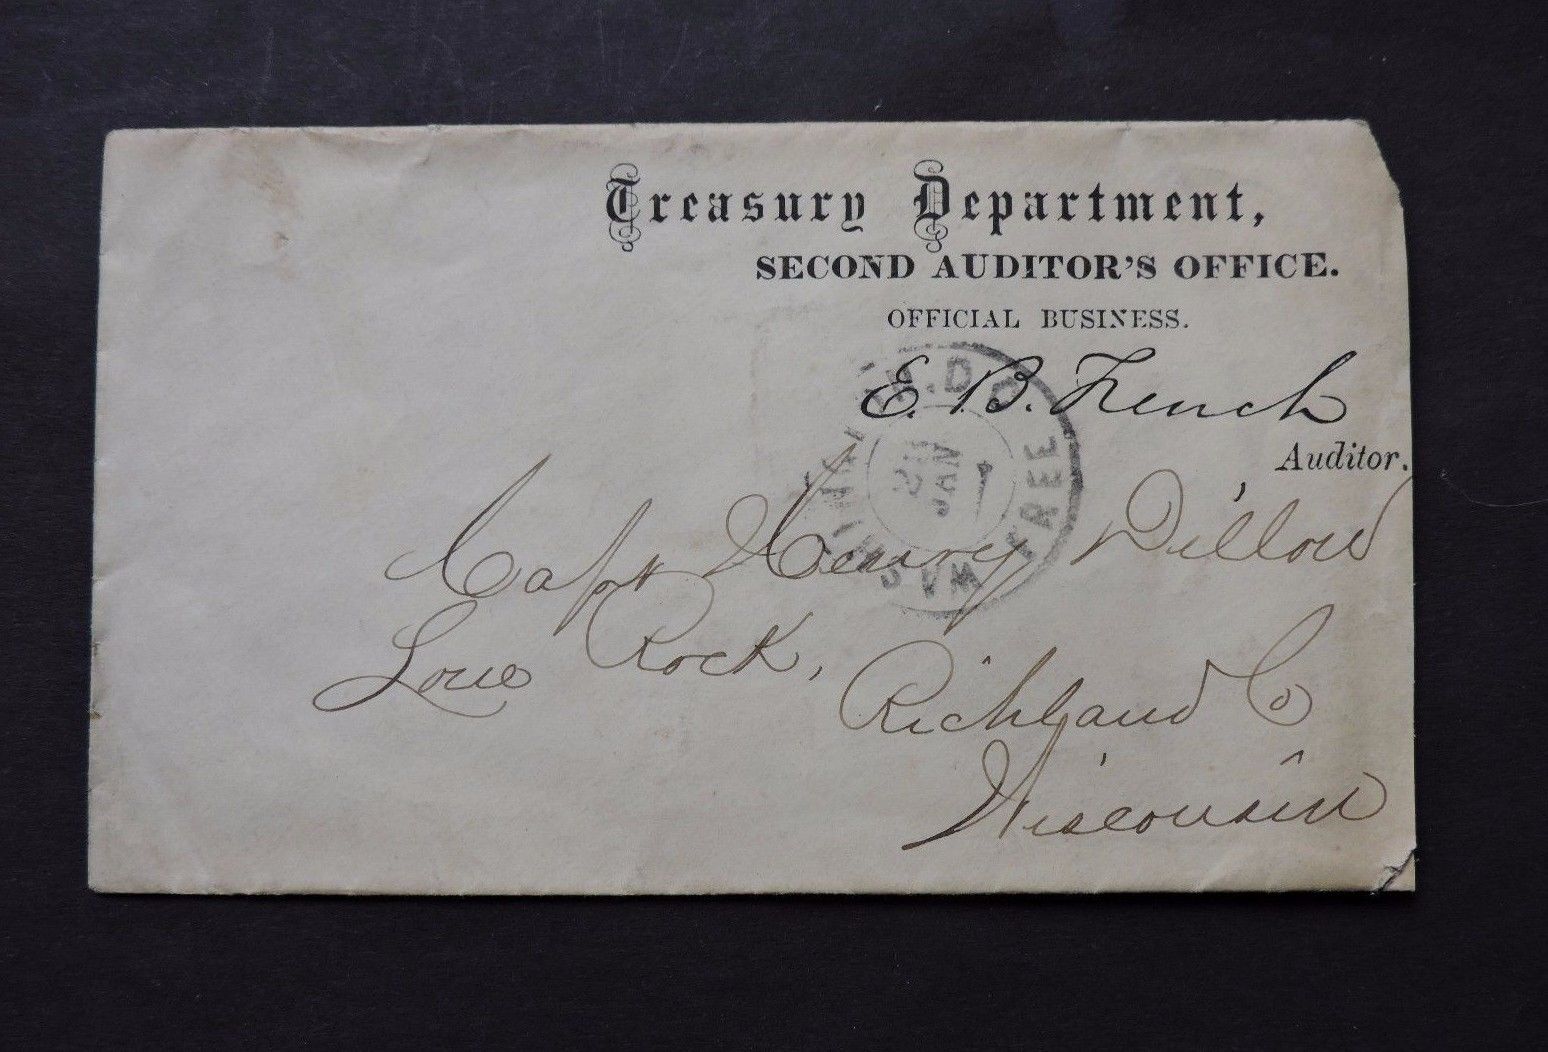 Treasury Department,
SECOND AUDITOR'S OFFICE.
OFFICIAL BUSINESS.
E. B. French
Auditor.
WASHINGTON D.C.
JAN
FREE
Capt Henry Dillon
Lone Rock,
Richland Co
Wisconsin